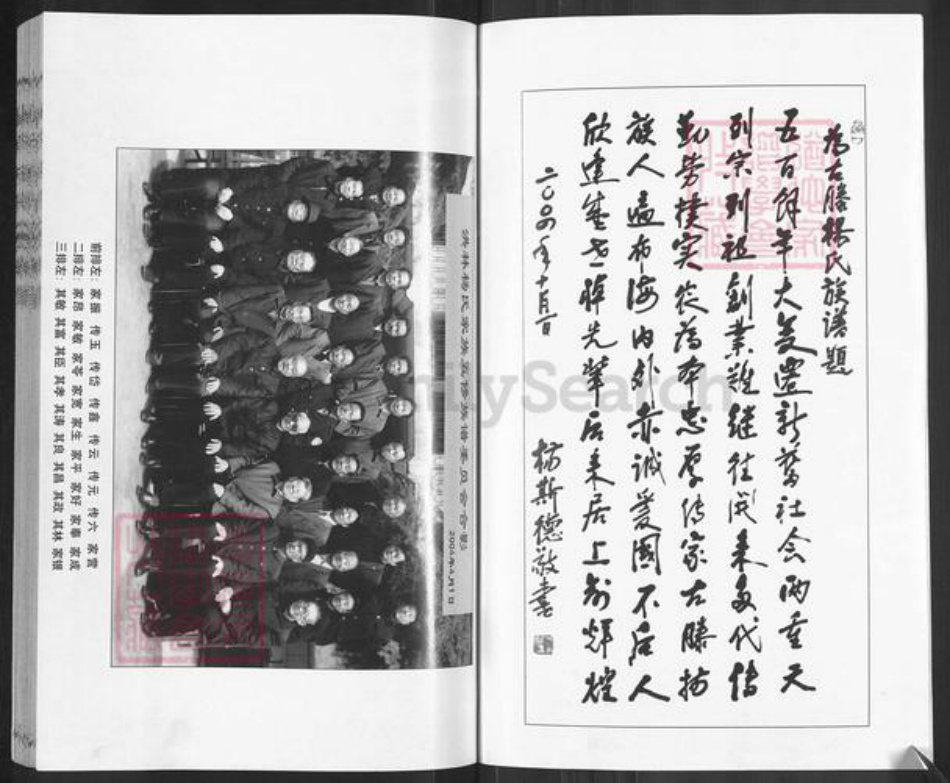 为古滕杨氏族谱题
五百馀年大变迁新旧社会两重天
列宗列祖創業艱继往開来多代传
勤劳樸实农为本忠厚传家古滕杨
族人遍布海内外赤诚爱國不后人
欣逢盛世悼先辈后来居上创辉煌
二〇〇四年十月一日
杨斯德敬書
2004年4月1日
前排左：家振 传玉 传岱 传鑫 传云 传元 传六 家营
二排左：家昂 家敏 家苓 家宽 家生 家平 家好 家奉 家成
三排左：其敏 其富 其臣 其孝 其涛 其良 其昌 其政 其林 家银
FamilySearch